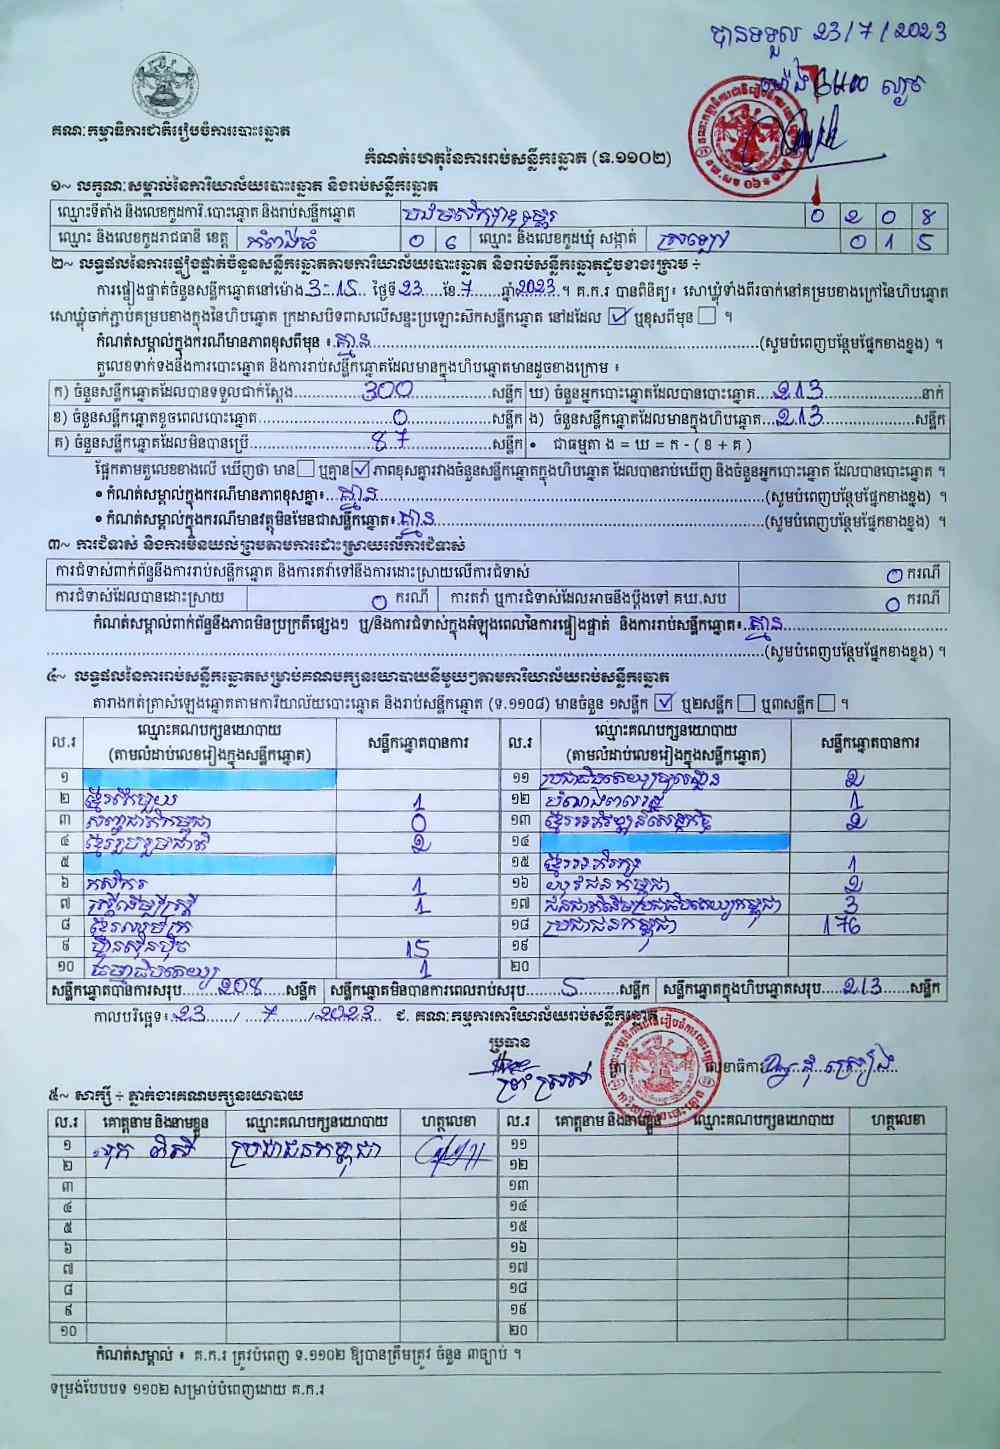 បានទទួល 23/7/2023
គណៈកម្មាធិការជាតិរៀបចំការបោះឆ្នោត
កំណត់ហេតុនៃការរាប់សន្លឹកឆ្នោត (ទ.១១០២)
១~ លក្ខណៈសម្គាល់នៃការិយាល័យបោះឆ្នោត និងរាប់សន្លឹកឆ្នោត
ឈ្មោះទីតាំង និងលេខកូដការិ.បោះឆ្នោត និងរាប់សន្លឹកឆ្នោត 0 2 0 8
ឈ្មោះ និងលេខកូដរាជធានី ខេត្ត កំពង់ធំ 0 6 ឈ្មោះ និងលេខកូដឃុំ សង្កាត់ 0 1 5
២~ លទ្ធផលនៃការផ្ទៀងផ្ទាត់ចំនួនសន្លឹកឆ្នោតតាមការិយាល័យបោះឆ្នោត និងរាប់សន្លឹកឆ្នោតដូចខាងក្រោម ÷
ការផ្ទៀងផ្ទាត់ចំនួនសន្លឹកឆ្នោតនៅម៉ោង 3-15 ថ្ងៃទី 23 ខែ 7 ឆ្នាំ 2023 ។ គ.ក.រ បានពិនិត្យ៖ សោឃ្លុំទាំងពីរចាក់នៅគម្របខាងក្រៅនៃហិបឆ្នោត
សោឃ្លុំចាក់ភ្ជាប់គម្របខាងក្នុងនៃហិបឆ្នោត ក្រដាសបិទពាសលើសន្ទះប្រឡោះស៊កសន្លឹកឆ្នោត នៅដដែល ☑ ឬខុសពីមុន ☐ ។
កំណត់សម្គាល់ក្នុងករណីមានភាពខុសពីមុន ៖ គ្មាន (សូមបំពេញបន្ថែមផ្នែកខាងខ្នង) ។
តួលេខទាក់ទងនឹងការបោះឆ្នោត និងការរាប់សន្លឹកឆ្នោតដែលមានក្នុងហិបឆ្នោតមានដូចខាងក្រោម ៖
ក) ចំនួនសន្លឹកឆ្នោតដែលបានទទួលជាក់ស្តែង 300 សន្លឹក ឃ) ចំនួនអ្នកបោះឆ្នោតដែលបានបោះឆ្នោត 213 នាក់
ខ) ចំនួនសន្លឹកឆ្នោតខូចពេលបោះឆ្នោត 0 សន្លឹក ង) ចំនួនសន្លឹកឆ្នោតដែលមានក្នុងហិបឆ្នោត 213 សន្លឹក
គ) ចំនួនសន្លឹកឆ្នោតដែលមិនបានប្រើ 87 សន្លឹក • ជាធម្មតា ង = ឃ = ក - ( ខ + គ )
ផ្អែកតាមតួលេខខាងលើ ឃើញថា មាន ☐ ឬគ្មាន ☑ ភាពខុសគ្នារវាងចំនួនសន្លឹកឆ្នោតក្នុងហិបឆ្នោត ដែលបានរាប់ឃើញ និងចំនួនអ្នកបោះឆ្នោត ដែលបានបោះឆ្នោត ។
• កំណត់សម្គាល់ក្នុងករណីមានភាពខុសគ្នា៖ គ្មាន (សូមបំពេញបន្ថែមផ្នែកខាងខ្នង) ។
• កំណត់សម្គាល់ក្នុងករណីមានវត្ថុមិនមែនជាសន្លឹកឆ្នោត៖ គ្មាន (សូមបំពេញបន្ថែមផ្នែកខាងខ្នង) ។
៣~ ការជំទាស់ និងការមិនយល់ព្រមតាមការដោះស្រាយលើការជំទាស់
ការជំទាស់ពាក់ព័ន្ធនឹងការរាប់សន្លឹកឆ្នោត និងការតវ៉ាទៅនឹងការដោះស្រាយលើការជំទាស់ 0 ករណី
ការជំទាស់ដែលបានដោះស្រាយ 0 ករណី ការតវ៉ា ឬការជំទាស់ដែលអាចនឹងប្តឹងទៅ គឃ.សប 0 ករណី
កំណត់សម្គាល់ពាក់ព័ន្ធនឹងភាពមិនប្រក្រតីផ្សេងៗ ឬ/និងការជំទាស់ក្នុងអំឡុងពេលនៃការផ្ទៀងផ្ទាត់ និងការរាប់សន្លឹកឆ្នោត៖ គ្មាន
(សូមបំពេញបន្ថែមផ្នែកខាងខ្នង) ។
៤~ លទ្ធផលនៃការរាប់សន្លឹកឆ្នោតសម្រាប់គណបក្សនយោបាយនីមួយៗតាមការិយាល័យរាប់សន្លឹកឆ្នោត
តារាងកត់ត្រាសំឡេងឆ្នោតតាមការិយាល័យបោះឆ្នោត និងរាប់សន្លឹកឆ្នោត (ទ.១១០៨) មានចំនួន ១សន្លឹក ☑ ឬ២សន្លឹក ☐ ឬ៣សន្លឹក ☐ ។
ល.រ ឈ្មោះគណបក្សនយោបាយ (តាមលំដាប់លេខរៀងក្នុងសន្លឹកឆ្នោត) សន្លឹកឆ្នោតបានការ ល.រ ឈ្មោះគណបក្សនយោបាយ (តាមលំដាប់លេខរៀងក្នុងសន្លឹកឆ្នោត) សន្លឹកឆ្នោតបានការ
១ ១១ 2
២ ខ្មែរតែមួយ 1 ១២ 1
៣ សញ្ជាតិកម្ពុជា 0 ១៣ ខ្មែរអភិវឌ្ឍន៍សេដ្ឋកិច្ច 2
៤ ខ្មែររួបរួមជាតិ 2 ១៤
៥ ១៥ ខ្មែរអភិរក្ស 1
៦ កសិករ 1 ១៦ យុវជនកម្ពុជា 2
៧ ស្ត្រីដើម្បីស្ត្រី 1 ១៧ 3
៨ ១៨ ប្រជាជនកម្ពុជា 176
៩ ហ៊្វុនស៊ិនប៉ិច 15 ១៩
១០ ធម្មាធិបតេយ្យ 1 ២០
សន្លឹកឆ្នោតបានការសរុប 208 សន្លឹក សន្លឹកឆ្នោតមិនបានការពេលរាប់សរុប 5 សន្លឹក សន្លឹកឆ្នោតក្នុងហិបឆ្នោតសរុប 213 សន្លឹក
កាលបរិច្ឆេទ៖ 23 / 7 / 2023 ជ. គណៈកម្មការការិយាល័យរាប់សន្លឹកឆ្នោត
ប្រធាន
លេខាធិការ
៥~ សាក្សី ÷ ភ្នាក់ងារគណបក្សនយោបាយ
ល.រ គោត្តនាម និងនាមខ្លួន ឈ្មោះគណបក្សនយោបាយ ហត្ថលេខា ល.រ គោត្តនាម និងនាមខ្លួន ឈ្មោះគណបក្សនយោបាយ ហត្ថលេខា
១ ប្រជាជនកម្ពុជា ១១
២ ១២
៣ ១៣
៤ ១៤
៥ ១៥
៦ ១៦
៧ ១៧
៨ ១៨
៩ ១៩
១០ ២០
កំណត់សម្គាល់ ៖ គ.ក.រ ត្រូវបំពេញ ទ.១១០២ ឱ្យបានត្រឹមត្រូវ ចំនួន ៣ច្បាប់ ។
ទម្រង់បែបបទ ១១០២ សម្រាប់បំពេញដោយ គ.ក.រ